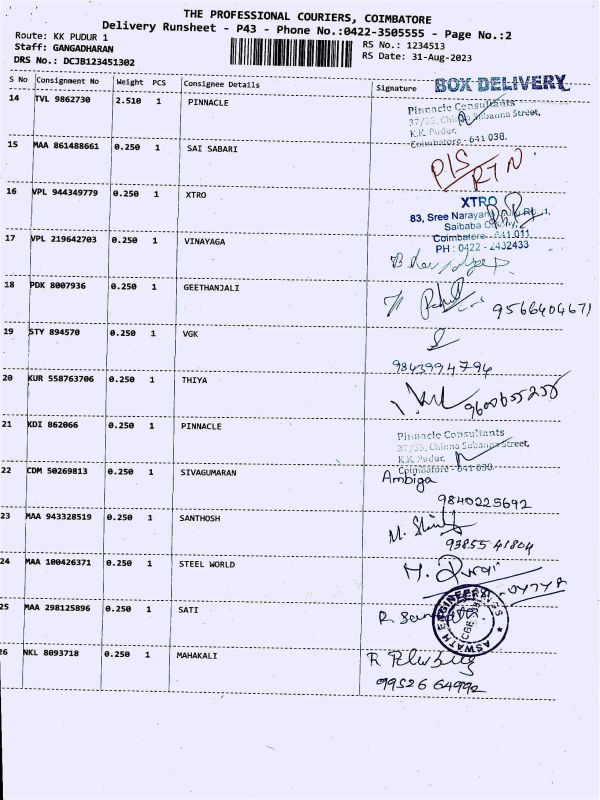 THE PROFESSIONAL COURIERS, COIMBATORE
Delivery Runsheet - P43 - Phone No.:0422-3505555 - Page No.:2
Route: KK PUDUR 1
Staff: GANGADHARAN
DRS No.: DCJB123451302
RS No.: 1234513
RS Date: 31-Aug-2023
S No Consignment No Weight PCS Consignee Details Signature
BOX DELIVERY
14 TVL 9862730 2.510 1 PINNACLE
Pinnacle Consultants
Street,
K.K. Pudur,
Coimbatore - 641 038.
15 MAA 861488661 0.250 1 SAI SABARI
P/S RTN
16 VPL 944349779 0.250 1 XTRO
XTRO
83, Sree
Saibaba
Coimbatore - 641 011
PH : 0422 - 2432433
17 VPL 219642703 0.250 1 VINAYAGA
18 PDK 8007936 0.250 1 GEETHANJALI
9566404671
19 STY 894570 0.250 1 VGK
9843994794
20 KUR 558763706 0.250 1 THIYA
9600655258
21 KDI 862066 0.250 1 PINNACLE
Pinnacle Consultants
Street,
K.K. Pudur,
Coimbatore - 641 038.
22 CDM 50269813 0.250 1 SIVAGUMARAN
Ambiga
9840225692
23 MAA 943328519 0.250 1 SANTHOSH
93855 41804
24 MAA 100426371 0.250 1 STEEL WORLD
25 MAA 298125896 0.250 1 SATI
ASWATH ENGINEERING
26 NKL 8093718 0.250 1 MAHAKALI
99526 64992